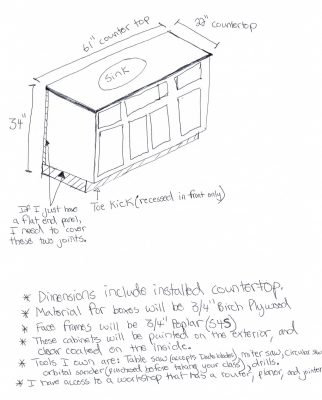 61" counter top
22" countertop
Sink
34"
If I just have
a flat end panel,
I need to cover
these two joints.
Toe Kick (recessed in front only)
* Dimensions include installed countertop.
* Material for boxes will be 3/4" Birch Plywood
* Face frames will be 3/4" Poplar (S4S)
* These cabinets will be painted on the exterior, and
clear coated on the inside.
* Tools I own are: Table saw (accepts Dado blades), miter saw, circular saw
orbital sander (purchased before taking your class), drills.
* I have access to a workshop that has a router, planer, and jointer